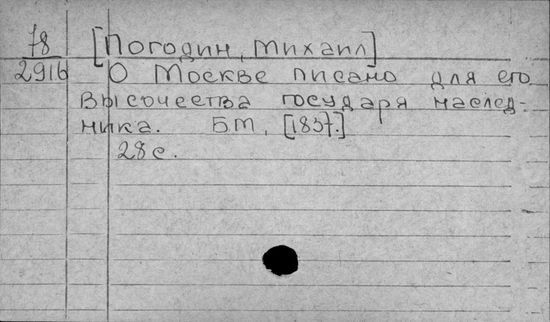 78 [Погодин, Михаил]
291б О Москве писано для его
высочества государя наслед-
ника. Б.м, [1837.]
28 с.